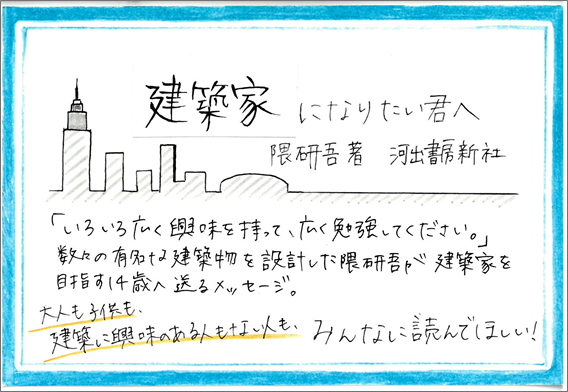 建築家になりたい君へ
隈研吾著 河出書房新社
「いろいろ広く興味を持って、広く勉強してください。」
数々の有名な建築物を設計した隈研吾が建築家を
目指す14歳へ送るメッセージ。
大人も子供も、
建築に興味のある人もない人も、みんなに読んでほしい!